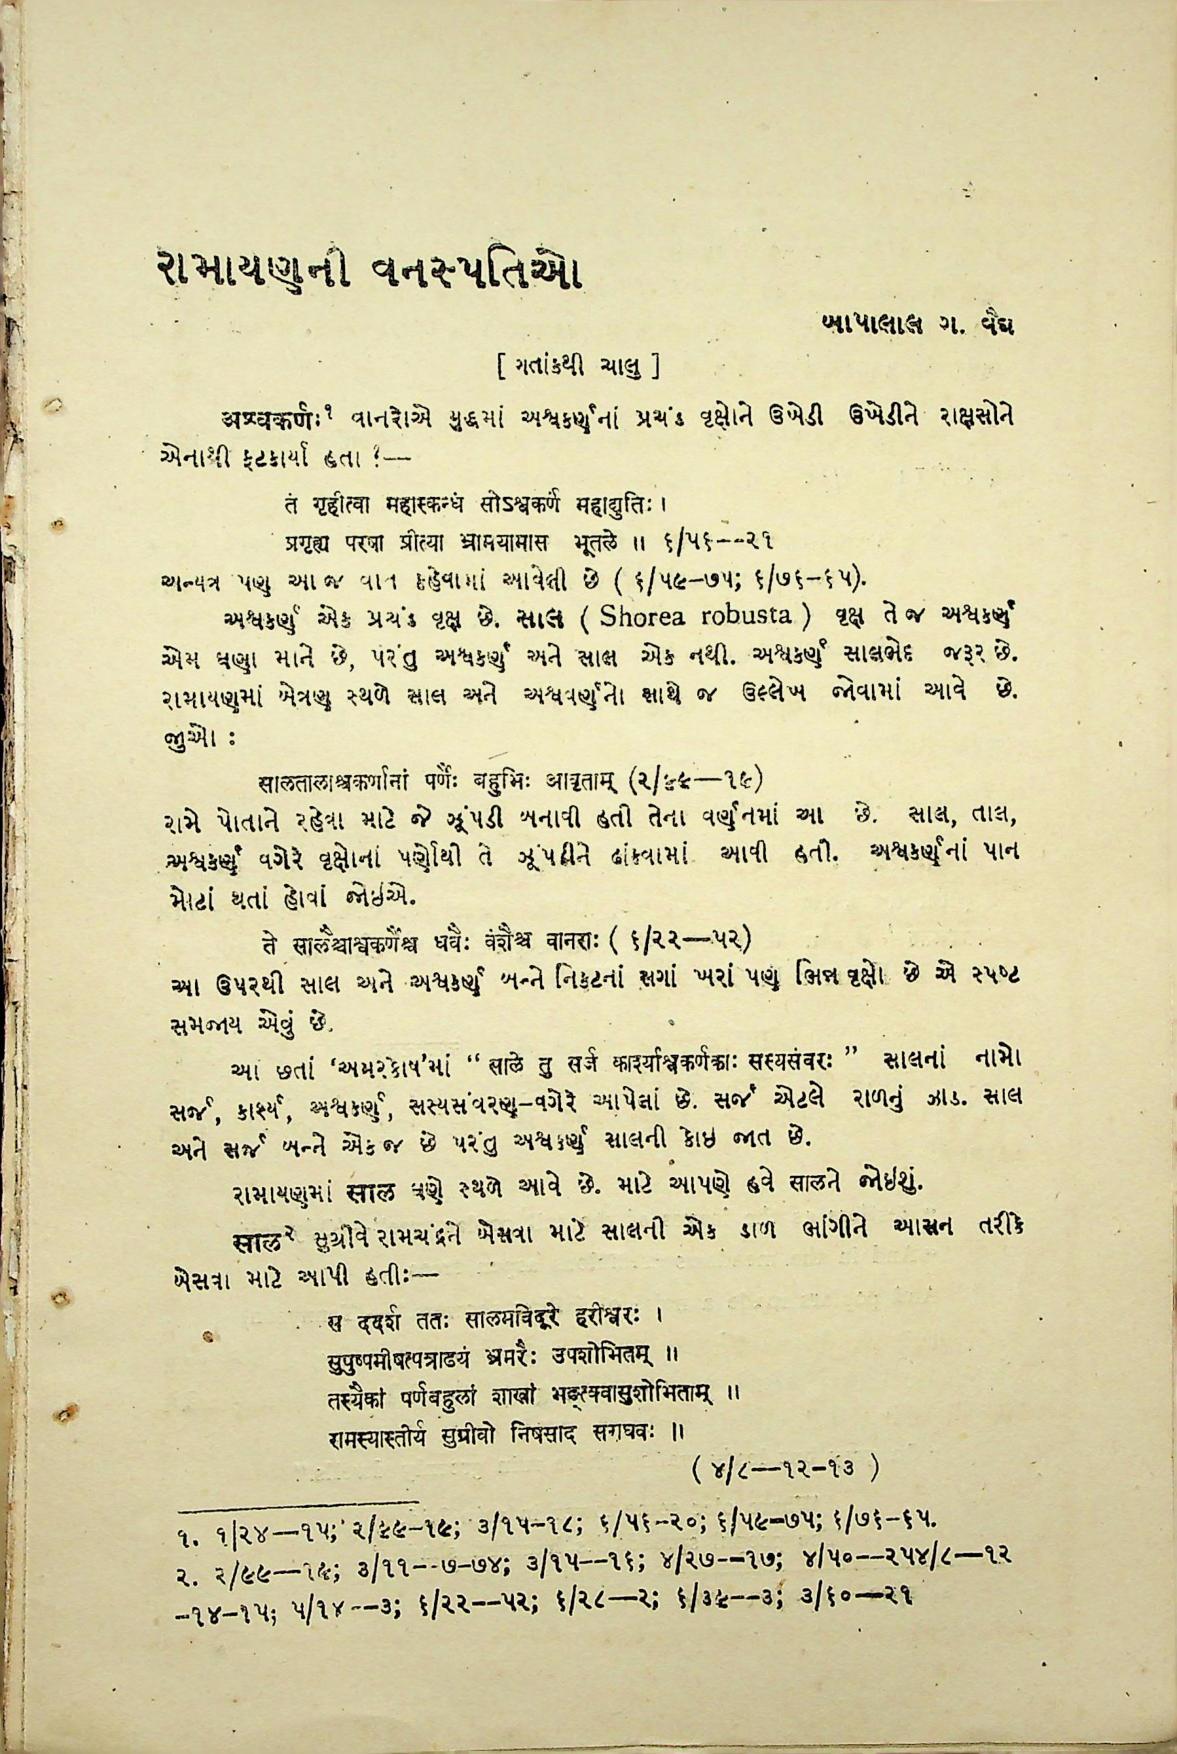 રામાયણની વનસ્પતિઓ
બાપાલાલ ગ. વૈદ્ય
[ ગતાંકથી ચાલુ ]
अश्वकर्णः૧ વાનરોએ યુદ્ધમાં અશ્વકર્ણનાં પ્રચંડ વૃક્ષોને ઉખેડી ઉખેડીને રાક્ષસોને
એનાથી ફટકાર્યા હતા ?—
तं गृहीत्वा महास्कन्धं सोऽश्वकर्णं महाद्युतिः ।
प्रगृह्य परया प्रीत्या भ्रामयामास भूतले ॥ ૬/૫૬--૨૧
અન્યત્ર પણ આ જ વાત કહેવામાં આવેલી છે ( ૬/૫૯-૭૫; ૬/૭૬-૬૫).
અશ્વકર્ણ એક પ્રચંડ વૃક્ષ છે. સાલ ( Shorea robusta ) વૃક્ષ તે જ અશ્વકર્ણ
એમ ઘણા માને છે, પરંતુ અશ્વકર્ણ અને સાલ એક નથી. અશ્વકર્ણ સાલભેદ જરૂર છે.
રામાયણમાં બેત્રણ સ્થળે સાલ અને અશ્વવર્ણનો સાથે જ ઉલ્લેખ જોવામાં આવે છે.
જુઓ :
सालतालाश्वकर्णानां पर्णैः बहुभिः आवृताम् (૨/૯૯—૧૯)
રામે પોતાને રહેવા માટે જે ઝૂંપડી બનાવી હતી તેના વર્ણનમાં આ છે. સાલ, તાલ,
અશ્વકર્ણ વગેરે વૃક્ષોનાં પર્ણોથી તે ઝૂંપડીને ઢાંકવામાં આવી હતી. અશ્વકર્ણનાં પાન
મોટાં થતાં હોવાં જોઇએ.
ते सालैश्चाश्वकर्णैश्च धवैः वंशैश्च वानराः ( ૬/૨૨—૫૨)
આ ઉપરથી સાલ અને અશ્વકર્ણ બન્ને નિકટનાં સગાં ખરાં પણ ભિન્ન વૃક્ષો છે એ સ્પષ્ટ
સમજાય એવું છે.
આ છતાં ‘અમરકોષ’માં “ साले तु सर्ज कार्श्याश्वकर्णकाः सस्यसंवरः ” સાલનાં નામો
સર્જ, કાર્શ્ય, અશ્વકર્ણ, સસ્યસંવરણ-વગેરે આપેલાં છે. સર્જ એટલે રાળનું ઝાડ. સાલ
અને સર્જ બન્ને એક જ છે પરંતુ અશ્વકર્ણ સાલની કોઇ જાત છે.
રામાયણમાં साल ઘણે સ્થળે આવે છે. માટે આપણે હવે સાલને જોઇશું.
साल૨ સુગ્રીવે રામચંદ્રને બેસવા માટે સાલની એક ડાળ ભાંગીને આસન તરીકે
બેસવા માટે આપી હતીઃ—
स ददर्श ततः सालमविदूरे हरीश्वरः ।
सुपुष्पमीषत्पत्राढयं भ्रमरैः उपशोभितम् ॥
तस्यैकां पर्णबहुलां शाखां भङ्क्त्वासुशोभिताम् ॥
रामस्यास्तीर्य सुग्रीवो निषसाद सराघवः ॥
( ૪/૮—૧૨-૧૩ )
૧. ૧/૨૪—૧૫; ૨/૯૯-૧૯; ૩/૧૫-૧૮; ૬/૫૬-૨૦; ૬/૫૯-૭૫; ૬/૭૬-૬૫.
૨. ૨/૯૯—૧૯; ૩/૧૧--૭-૭૪; ૩/૧૫--૧૬; ૪/૨૭--૧૭; ૪/૫૦--૨૫૪/૮—૧૨
-૧૪-૧૫; ૫/૧૪--૩; ૬/૨૨--૫૨; ૬/૨૮—૨; ૬/૩૯--૩; ૩/૬૦—૨૧